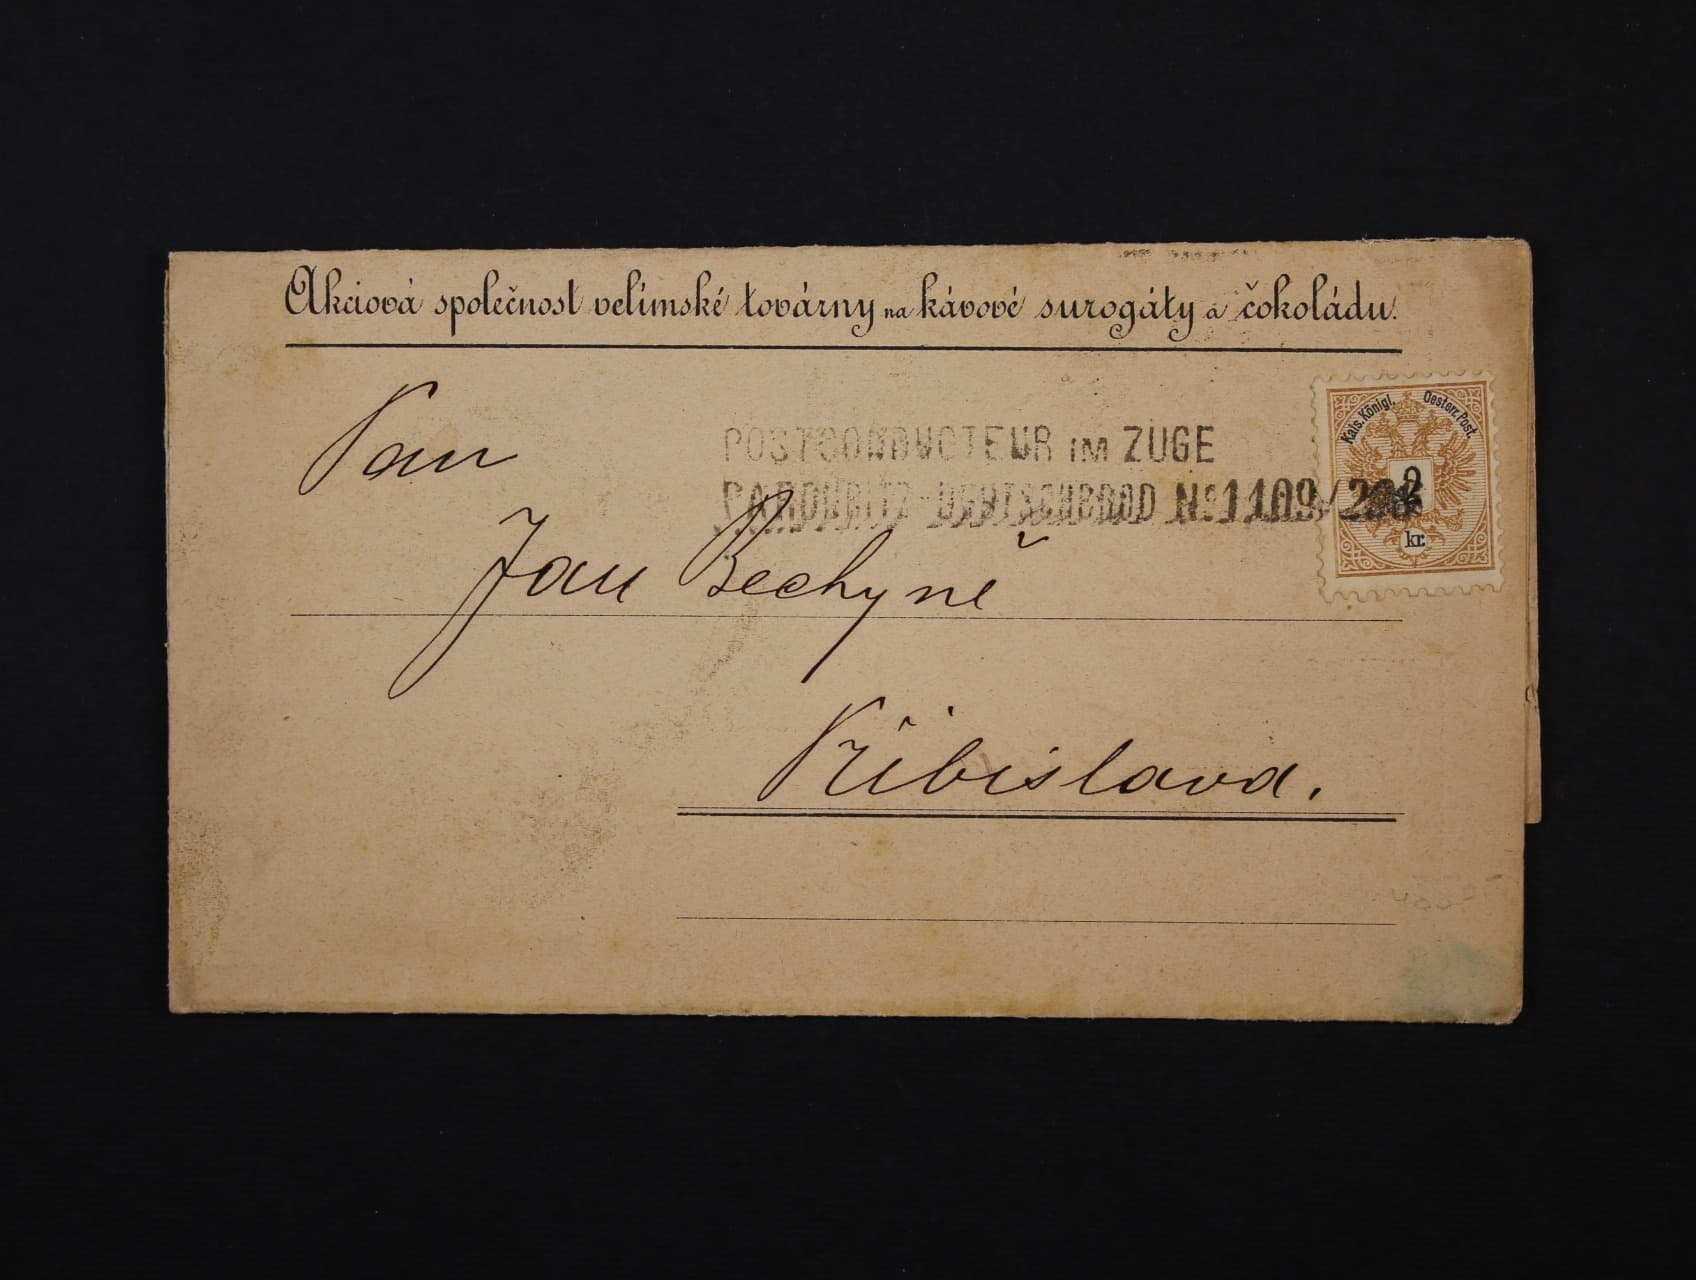 Akciová společnost velimské továrny na kávové surogáty a čokoládu.
Kais. Königl. Oesterr. Post.
2
kr.
POSTCONDUCTEUR IM ZUGE
PARDUBITZ-DEUTSCHBROD No 1109/
Pan
Jan Bechyně
Přibislava.